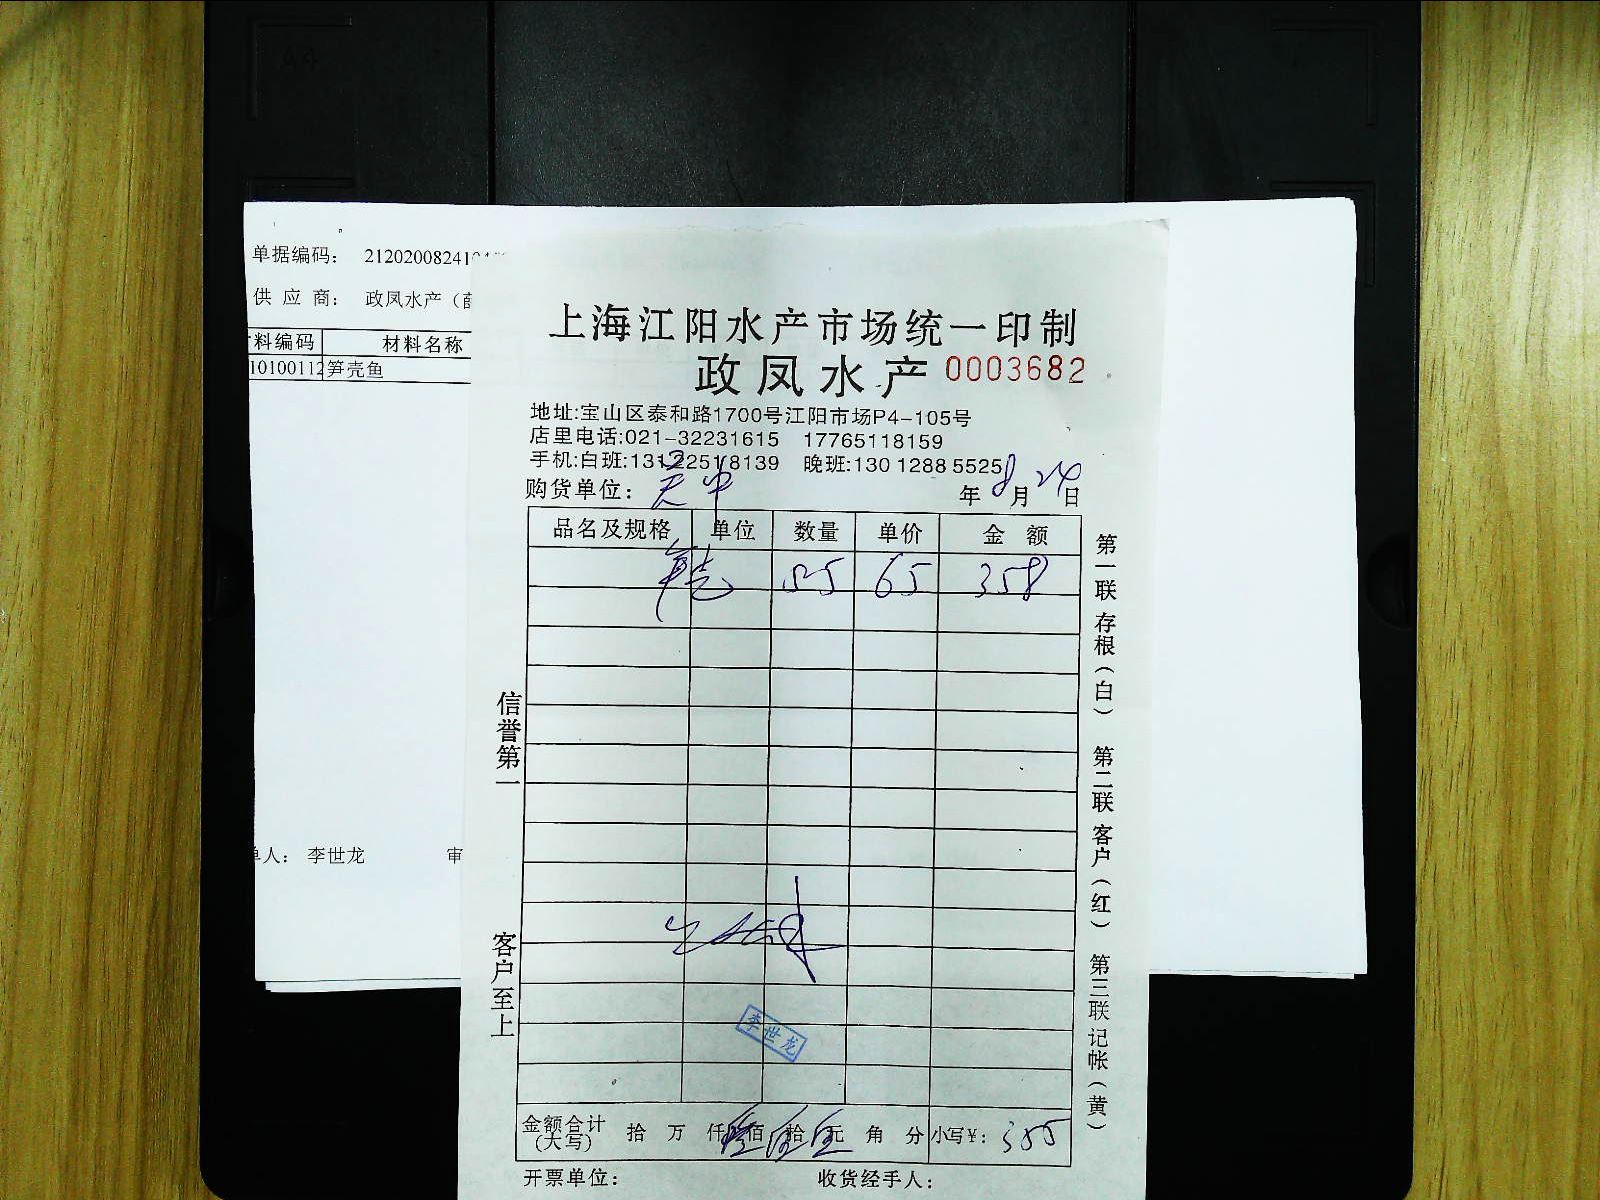 单据编码： 212020082410
供 应 商： 政凤水产（薛
料编码 材料名称
10100112 笋壳鱼
单人： 李世龙 审
上海江阳水产市场统一印制
政凤水产 0003682
地址:宝山区泰和路1700号江阳市场P4-105号
店里电话:021-32231615 17765118159
手机:白班:13122518139 晚班:130 1288 5525
购货单位： 年 8 月 24 日
品名及规格 单位 数量 单价 金 额
笋壳 5.5 65 358
信誉第一
客户至上
第一联 存根（白） 第二联 客户（红） 第三联 记帐（黄）
李世龙
金额合计 拾 万 仟 佰 拾 元 角 分 小写¥： 355
(大写)
开票单位： 收货经手人：